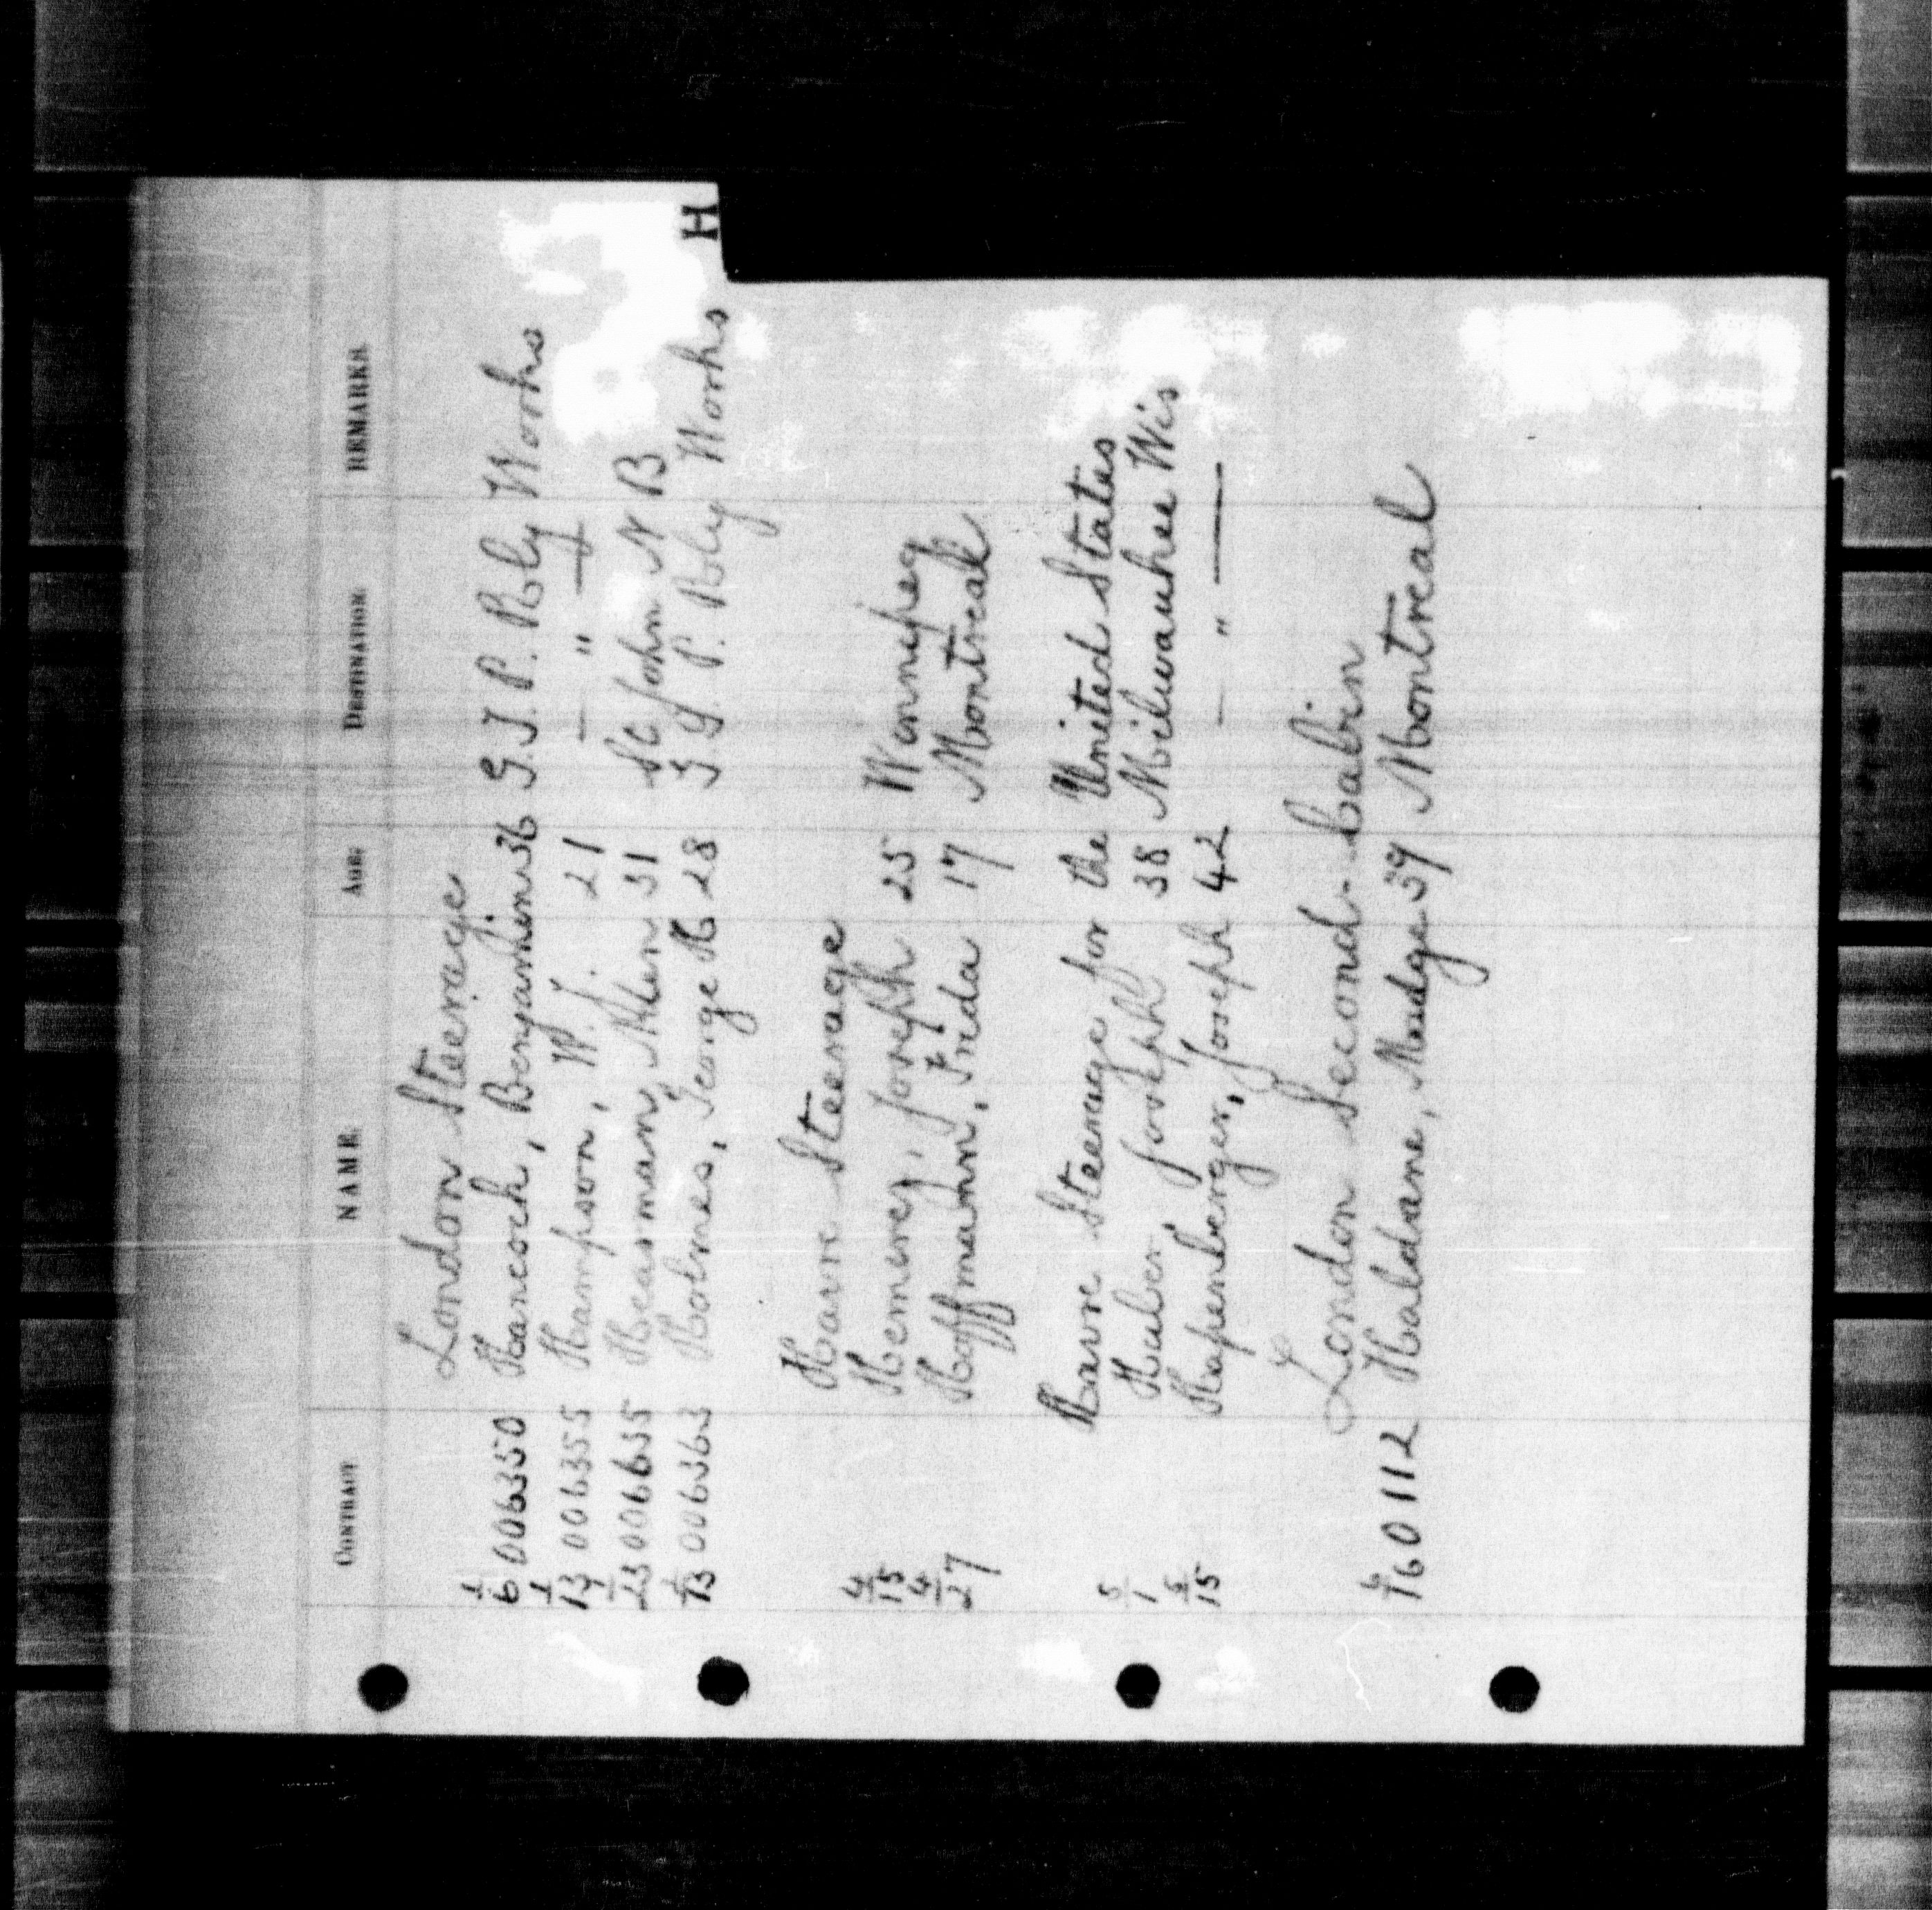 H
CONTRACT NAME AGE DESTINATION REMARKS
London Steerage
1/6 006350 Hancock, Benjamin 36 G.T.P. Rly Works
1/13 006355 Hampson, W.J. 21 — " —
1/23 006655 Hearmann, 31 St John N B
1/13 006363 Holmes, George H 28 G.T.P. Rly Works
Havre Steerage
4/15 Hemery, Joseph 25 Winnipeg
4/27 Hoffmann, Frieda 17 Montreal
Havre Steerage for the United States
5/1 Huber Joseph 38 Milwaukee Wis
5/15 Hapenberger, Joseph 42 — " —
London Second Cabin
6/16 0112 Haldane, Madge 39 Montreal